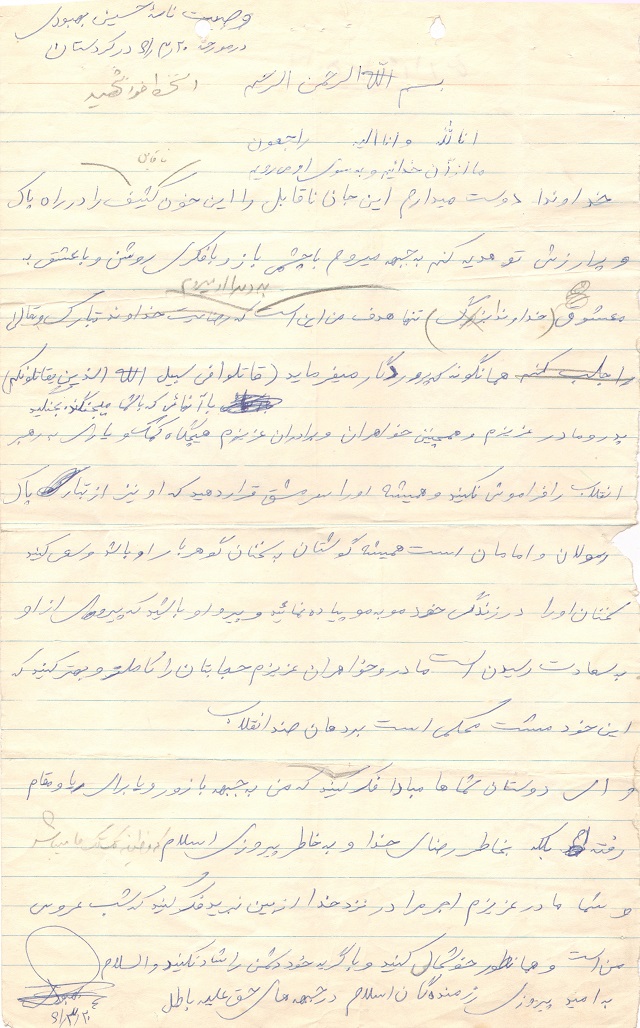 وصیت نامهٔ حسین بهبودی
در مورخه ۶۱/۳/۲۰ در کردستان
بسم الله الرحمن الرحیم
انا لله و انا الیه راجعون
ما از آن خدائیم و به سوی او می رویم
خداوندا دوست میدارم این جان ناقابل و این خون کثیف را در راه پاک
و پر ارزش تو هدیه کنم به جبهه میروم با چشمی باز و با فکری روشن و با عشق به
معشوق (خداوند بزرگ) تنها هدف من این است که رضایت خداوند تبارک و تعالی
را جلب کنم همانگونه که پروردگار میفرماید (قاتلوا فی سبیل الله الذین یقاتلونکم)
با آنهائی که با شما میجنگند بجنگید
پدر و مادر عزیزم و همچنین خواهران و برادران عزیزم هیچگاه کمک و یاری به رهبر
انقلاب را فراموش نکنید و همیشه او را سرمشق قرار دهید که او نیز از تبار پاک
رسولان و امامان است همیشه گوشتان به سخنان گوهربار او باشد و سعی کنید
سخنان او را در زندگی خود مو به مو پیاده نمائید و پیرو او باشید که پیروی از او
به سعادت رسیدن است مادر و خواهران عزیزم حجابتان را کاملتر و بهتر کنید که
این خود مشت محکمی است بر دهان ضد انقلاب
و ای دوستان شما ها مبادا فکر کنید که من به جبهه با زور و یا برای ریا و مقام
رفته ام بلکه بخاطر رضای خدا و به خاطر پیروزی اسلام
و شما مادر عزیزم اجر مرا در نزد خدا از بین نبرید فکر کنید که شب عروسی
من است و همانطور خوشحالی کنید و با گریه خود دشمن را شاد نکنید والسلام
به امید پیروزی رزمندگان اسلام در جبهه های حق علیه باطل
۶۱/۳/۲۰